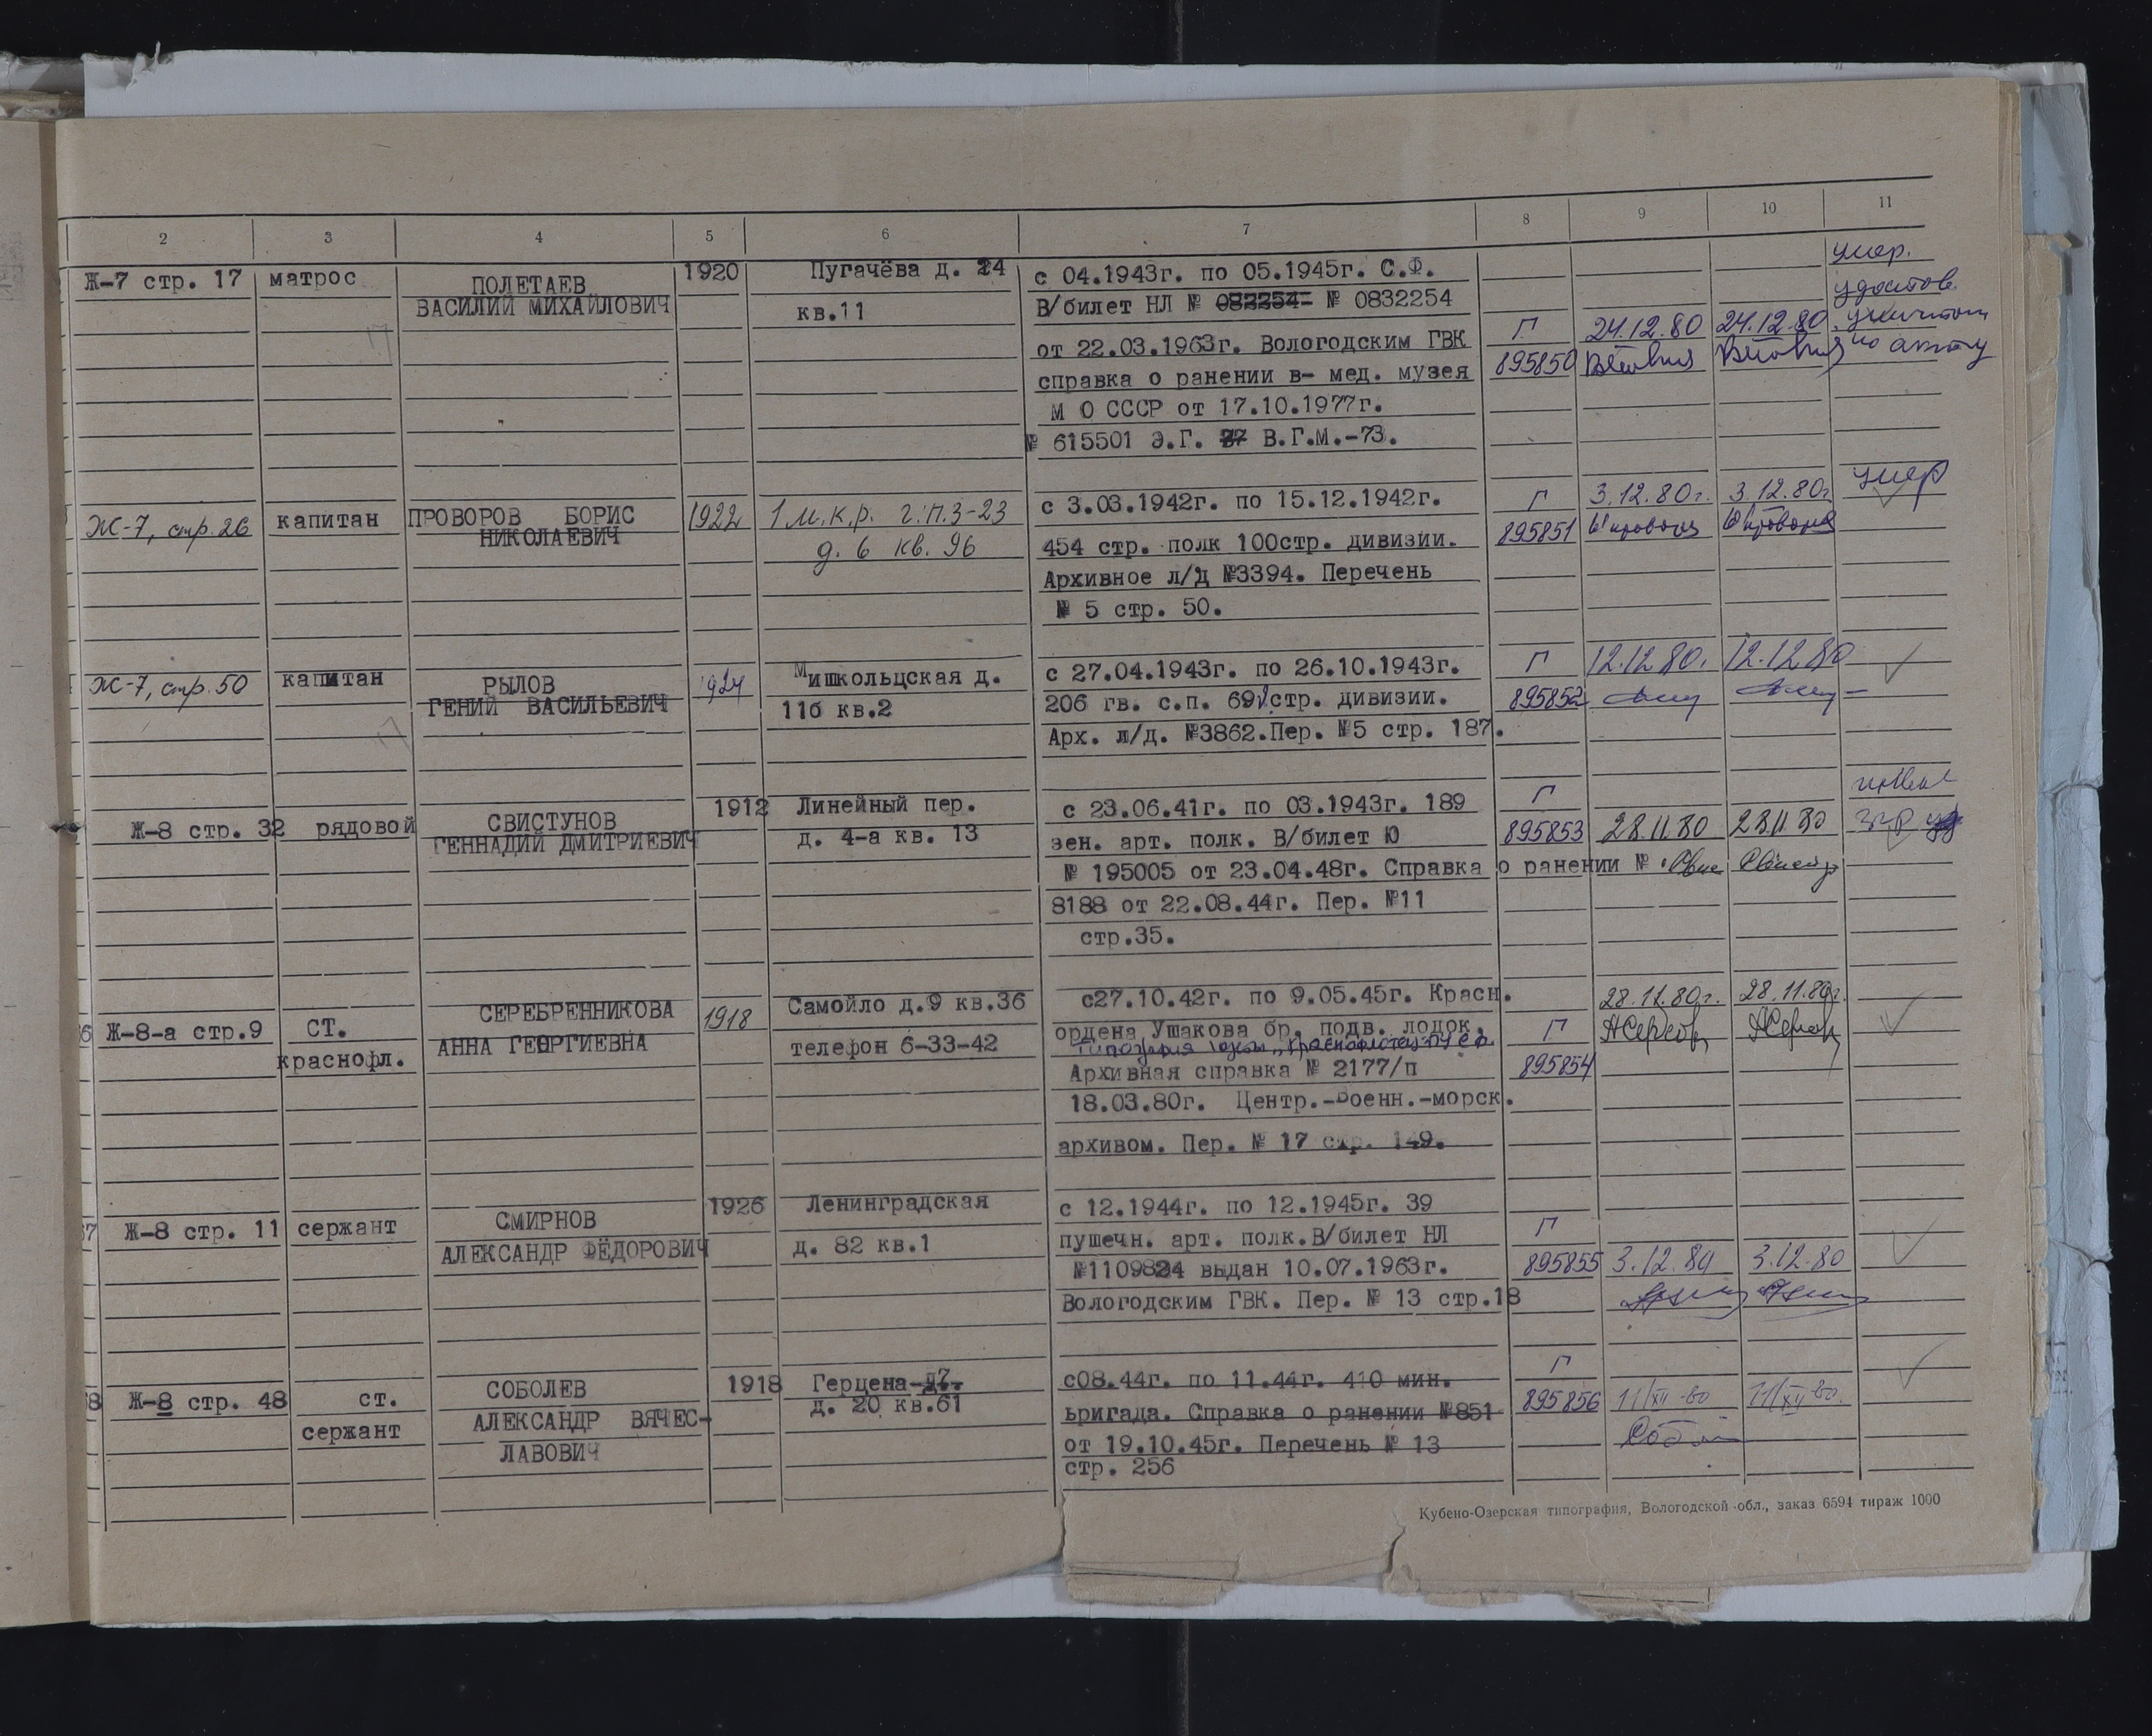 2 3 4 5 6 7 8 9 10 11
Ж-7 стр. 17 матрос ПОЛЕТАЕВ 1920 Пугачёва д. 24 с 04.1943г. по 05.1945г. С.Ф. умер.
ВАСИЛИЙ МИХАЙЛОВИЧ кв.11 В/билет НЛ № 082254 № 0832254 удостов.
от 22.03.1963г. Вологодским ГВК Г 24.12.80 24.12.80
справка о ранении в- мед. музея 895850 по акту
М О СССР от 17.10.1977г.
№ 615501 Э.Г. В.Г.М.-73.
Ж-7, стр. 26 капитан ПРОВОРОВ БОРИС 1922 1 м.к.р. г.п.3-23 с 3.03.1942г. по 15.12.1942г. Г 3.12.80г. 3.12.80г умер
НИКОЛАЕВИЧ д. 6 кв. 96 454 стр. полк 100стр. дивизии. 895851
Архивное л/д №3394. Перечень
№ 5 стр. 50.
Ж-7, стр. 50 капитан РЫЛОВ 1924 Мишкольцская д. с 27.04.1943г. по 26.10.1943г. Г 12.12.80. 12.12.80
ГЕНИЙ ВАСИЛЬЕВИЧ 11б кв.2 206 гв. с.п. 69 стр. дивизии. 895852
Арх. л/д. №3862.Пер. №5 стр. 187.
Ж-8 стр. 32 рядовой СВИСТУНОВ 1912 Линейный пер. с 23.06.41г. по 03.1943г. 189 Г
ГЕННАДИЙ ДМИТРИЕВИЧ д. 4-а кв. 13 зен. арт. полк. В/билет Ю 895853 28.11.80 28.11.80
№ 195005 от 23.04.48г. Справка о ранении №
8188 от 22.08.44г. Пер. №11
стр.35.
Ж-8-а стр.9 СТ. СЕРЕБРЕННИКОВА 1918 Самойло д.9 кв.36 с27.10.42г. по 9.05.45г. Красн. 28.11.80г. 28.11.80г.
краснофл. АННА ГЕОРГИЕВНА телефон 6-33-42 ордена Ушакова бр. подв. лодок. Г
Архивная справка № 2177/п 895854
18.03.80г. Центр.-Военн.-морск.
архивом. Пер. № 17 стр. 149.
7 Ж-8 стр. 11 сержант СМИРНОВ 1926 Ленинградская с 12.1944г. по 12.1945г. 39 Г
АЛЕКСАНДР ФЁДОРОВИЧ д. 82 кв.1 пушечн. арт. полк.В/билет НЛ
выдан 10.07.1963г. 895855 3.12.80 3.12.80
Вологодским ГВК. Пер. № 13 стр.18
8 Ж-8 стр. 48 ст. СОБОЛЕВ 1918 Герцена с08.44г. по 11.44г. 410 мин. Г
сержант АЛЕКСАНДР ВЯЧЕС- д. 20 кв.61 ьригада. Справка о ранении №851 895856 11/XII-80 11/XII-80.
ЛАВОВИЧ от 19.10.45г. Перечень № 13
стр. 256
Кубено-Озерская типография, Вологодской обл., заказ 6594 тираж 1000